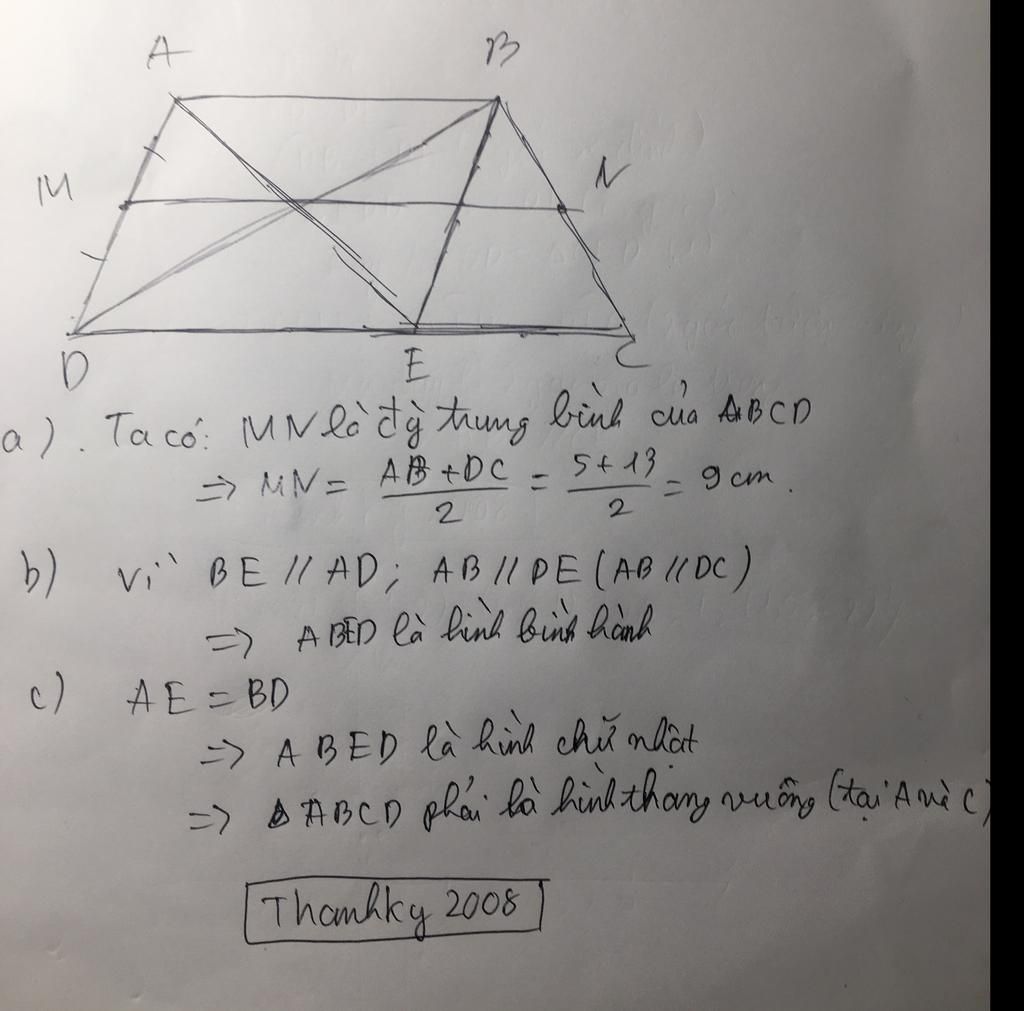 A B
M N
D E C
a). Ta có: MN là đg trung bình của ABCD
=> MN = (AB + DC)/2 = (5+13)/2 = 9 cm.
b) Vì BE // AD; AB // DE (AB // DC)
=> ABED là hình bình hành
c) AE = BD
=> ABED là hình chữ nhật
=> ABCD phải là hình thang vuông (tại A và C)
Thanhky 2008